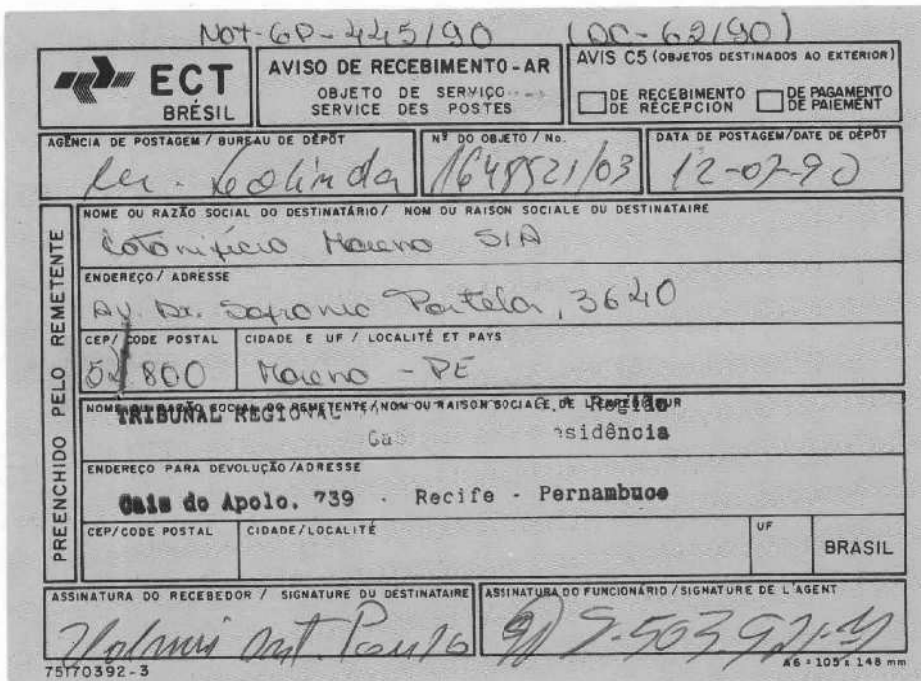 NOT-GP-445/90 (DC-62/90)
ECT
BRÉSIL
AVISO DE RECEBIMENTO-AR
OBJETO DE SERVIÇO
SERVICE DES POSTES
AVIS C5 (OBJETOS DESTINADOS AO EXTERIOR)
DE RECEBIMENTO
DE RÉCEPCION
DE PAGAMENTO
DE PAIEMENT
AGÊNCIA DE POSTAGEM / BUREAU DE DÉPÔT
Nº DO OBJETO / No.
1648521/03
DATA DE POSTAGEM/DATE DE DÉPÔT
12-07-90
PREENCHIDO PELO REMETENTE
NOME OU RAZÃO SOCIAL DO DESTINATÁRIO / NOM OU RAISON SOCIALE DU DESTINATAIRE
Cotonifício Moreno S/A
ENDEREÇO / ADRESSE
Av. Dr. Sofronio Portela, 3640
CEP/ CODE POSTAL
CIDADE E UF / LOCALITÉ ET PAYS
800
Moreno - PE
NOME OU RAZÃO SOCIAL DO REMETENTE / NOM OU RAISON SOCIALE DE
TRIBUNAL REGIONAL Região
sidência
ENDEREÇO PARA DEVOLUÇÃO /ADRESSE
Cais do Apolo, 739 - Recife - Pernambuco
CEP/CODE POSTAL
CIDADE/LOCALITÉ
UF
BRASIL
ASSINATURA DO RECEBEDOR / SIGNATURE DU DESTINATAIRE
ASSINATURA DO FUNCIONÁRIO / SIGNATURE DE L'AGENT
75170392-3
A6 = 105 x 148 mm